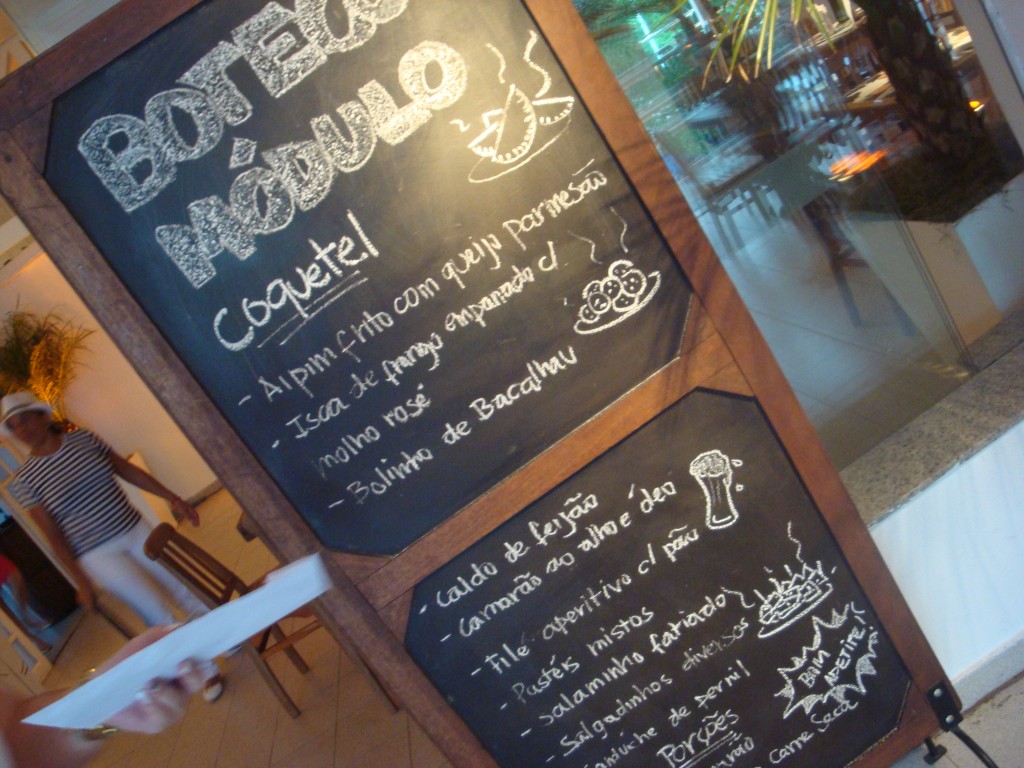 BOTECO
MÓDULO
Coquetel
- Aipim frito com queijo parmesão
- Isca de frango empanado c/
molho rosé
- Bolinho de Bacalhau
- Caldo de feijão
- Camarão ao alho e óleo
- Filé aperitivo c/ pão
- Pastéis mistos
- Salaminho fatiado
- Salgadinhos diversos
de pernil
BOM
APETITE!
Porções
Carne Seca